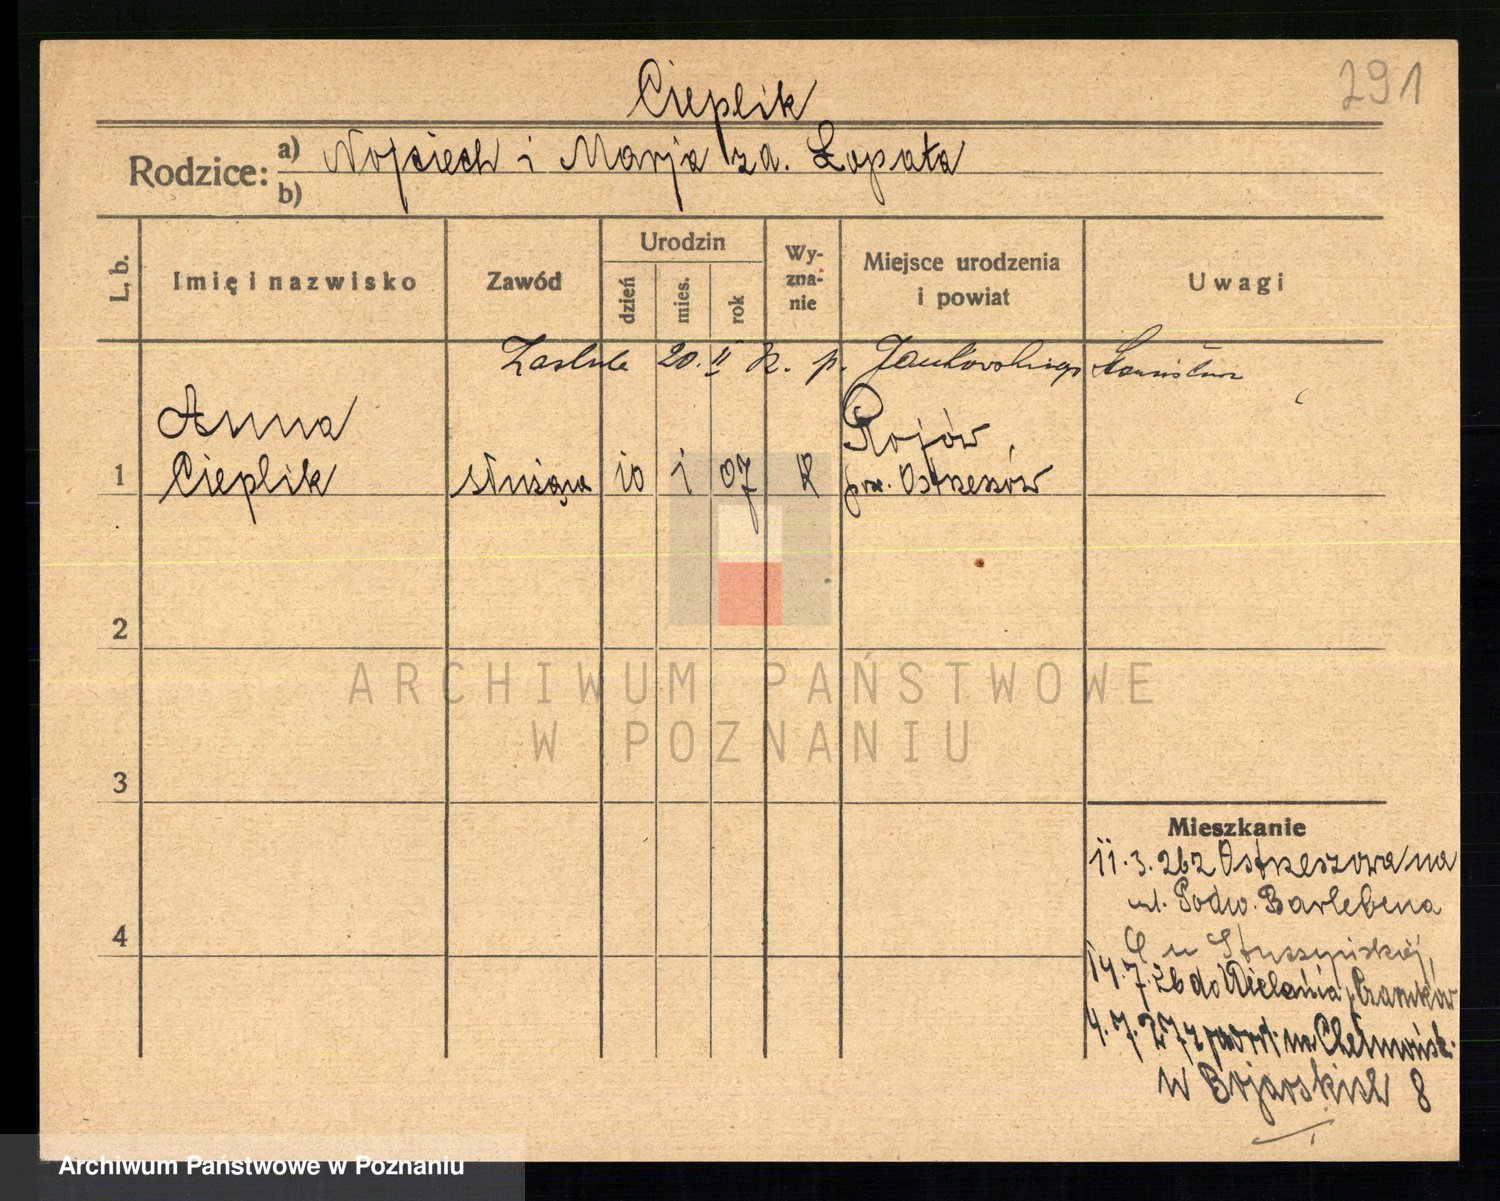 291
Cieplik
Rodzice: a) Wojciech i Marja zd. Łopata
b)
L. b.
Imię i nazwisko
Zawód
Urodzin
dzień
mies.
rok
Wy-
zna-
nie
Miejsce urodzenia
i powiat
Uwagi
20. II p. Jankowskiego
1
Anna
Cieplik
służąca
10
1
07
K
Rojów
pow. Ostrzeszów
2
3
4
Mieszkanie
11.3.26 z Ostrzeszowa na
ul. Podw. Barlebena
u
14.7.26 do Wielenia, Czarnków
4.7.27 z powr. Chełmońsk.
u Bojarskich 8
ARCHIWUM PAŃSTWOWE
W POZNANIU
Archiwum Państwowe w Poznaniu